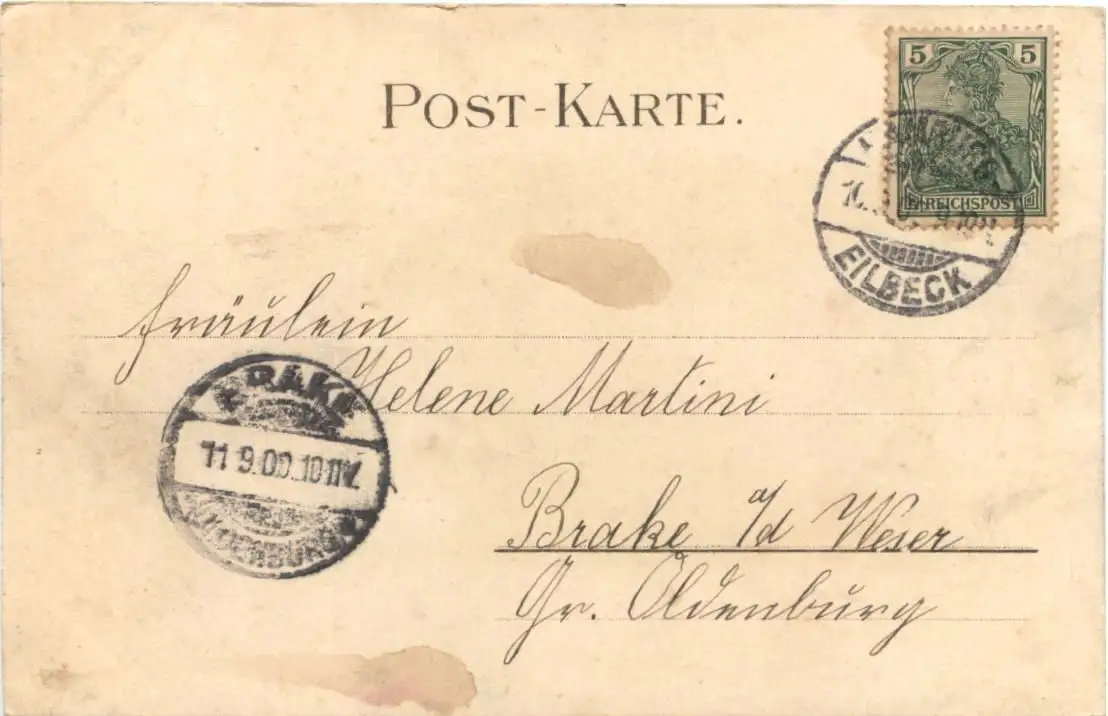 POST-KARTE.
5 5
REICHSPOST
EILBECK
Fräulein
Helene Martini
BRAKE
11 9.00.10-11V.
OLDENBURG
Brake a/d Weser
Gr. Oldenburg